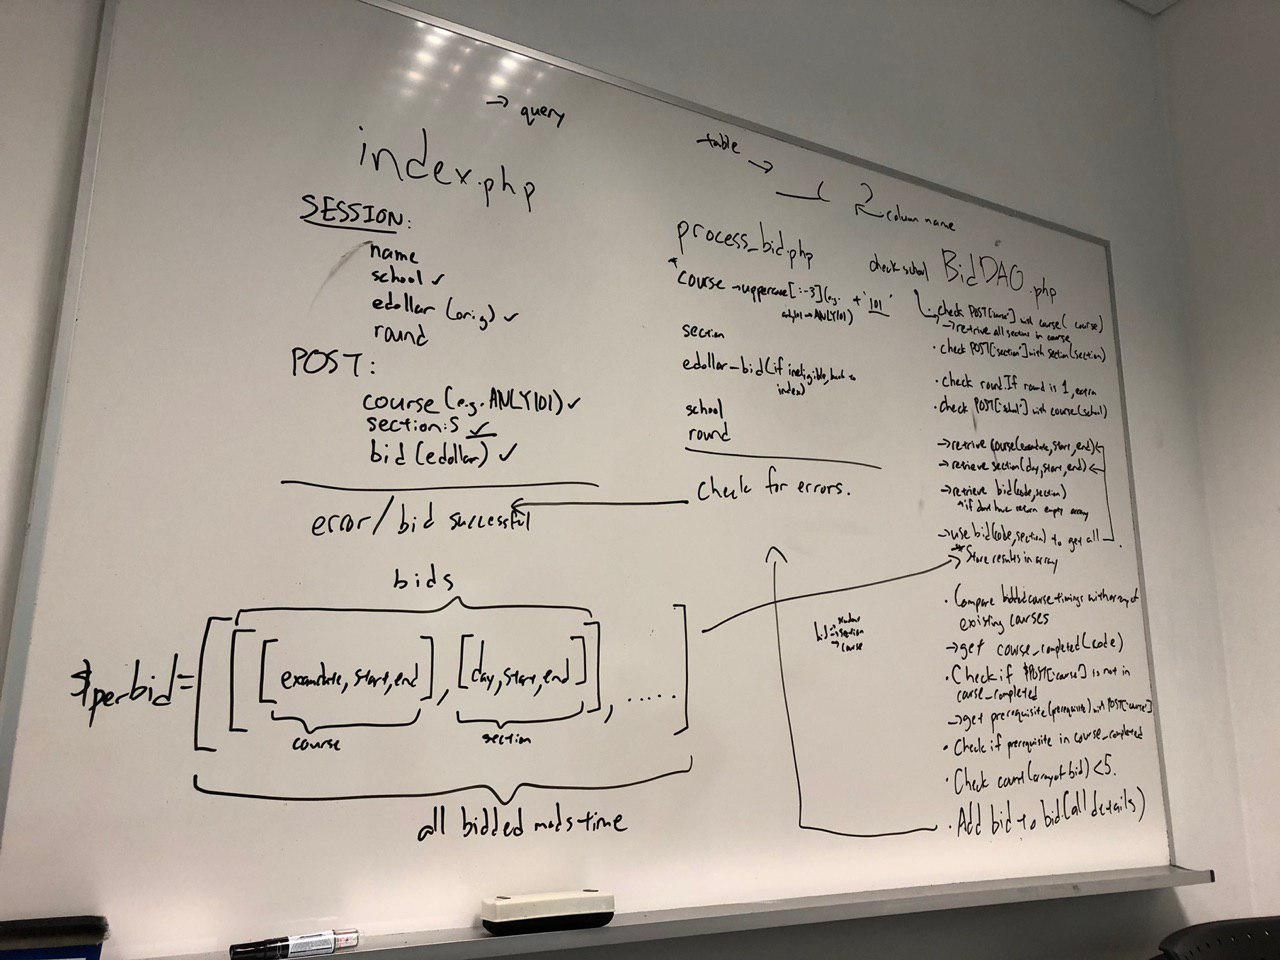 → query
index.php
SESSION:
name
school ✓
edollar (orig) ✓
round
POST:
course (e.g. ANLY101) ✓
section: S ✓
bid (edollar) ✓
error/bid successful
bids
$perbid = [[[examdate, start, end], [day, start, end]], .....]
course
section
all bidded mods time
table →
___( )
← column name
process_bid.php
* course → uppercase[:-3](e.g. + '101'
anly101 → ANLY101)
section
edollar - bid (if ineligible, back to
index)
school
round
Check for errors.
bid → student
→ section
→ course
check school
BidDAO.php
check POST['course'] with course( course)
→ retrive all sections in course
· check POST['section'] with section(section)
· check round. If round is 1, extra
· check POST['school'] with course(school)
→ retrive course(examdate, start, end)
→ retrieve section(day, start, end)
→ retrieve bid(code, section)
* if dont have return empty array
→ use bid(code, section) to get all
* Store results in array
· Compare bidded course timings with array of
existing courses
→ get course_completed(code)
· Check if $POST['course'] is not in
course_completed
→ get prerequisite(prerequisite) with POST['course']
· Check if prerequisite in course_completed
· Check count(array of bid) < 5.
· Add bid to bid(all details)